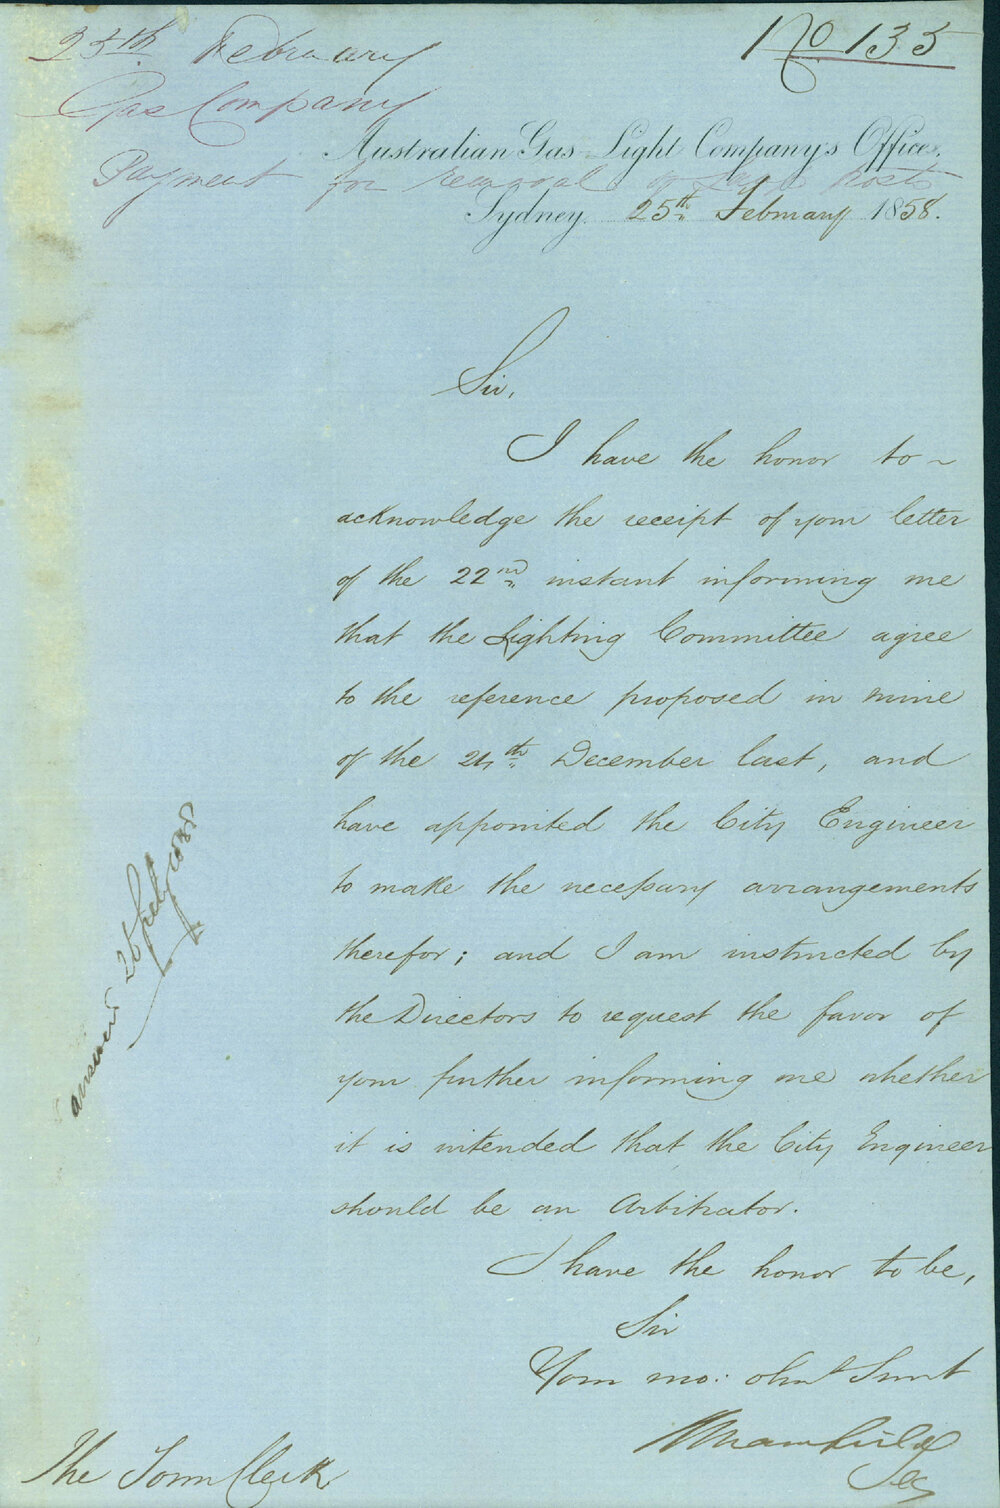 25th February
No 135
Gas Company
Australian Gas Light Company's Office,
Payment for removal of Lamp Posts
Sydney, 25th February 1858.
Sir,
I have the honor to
acknowledge the receipt of your letter
of the 22nd instant informing me
that the Lighting Committee agree
to the reference proposed in mine
of the 24th December last, and
have appointed the City Engineer
to make the necessary arrangements
therefor; and I am instructed by
the Directors to request the favor of
your further informing me whether
it is intended that the City Engineer
should be an Arbitrator.
I have the honor to be,
Sir
Your mo: obnt Servt
Secy
The Town Clerk
answered 26 Feby 1858